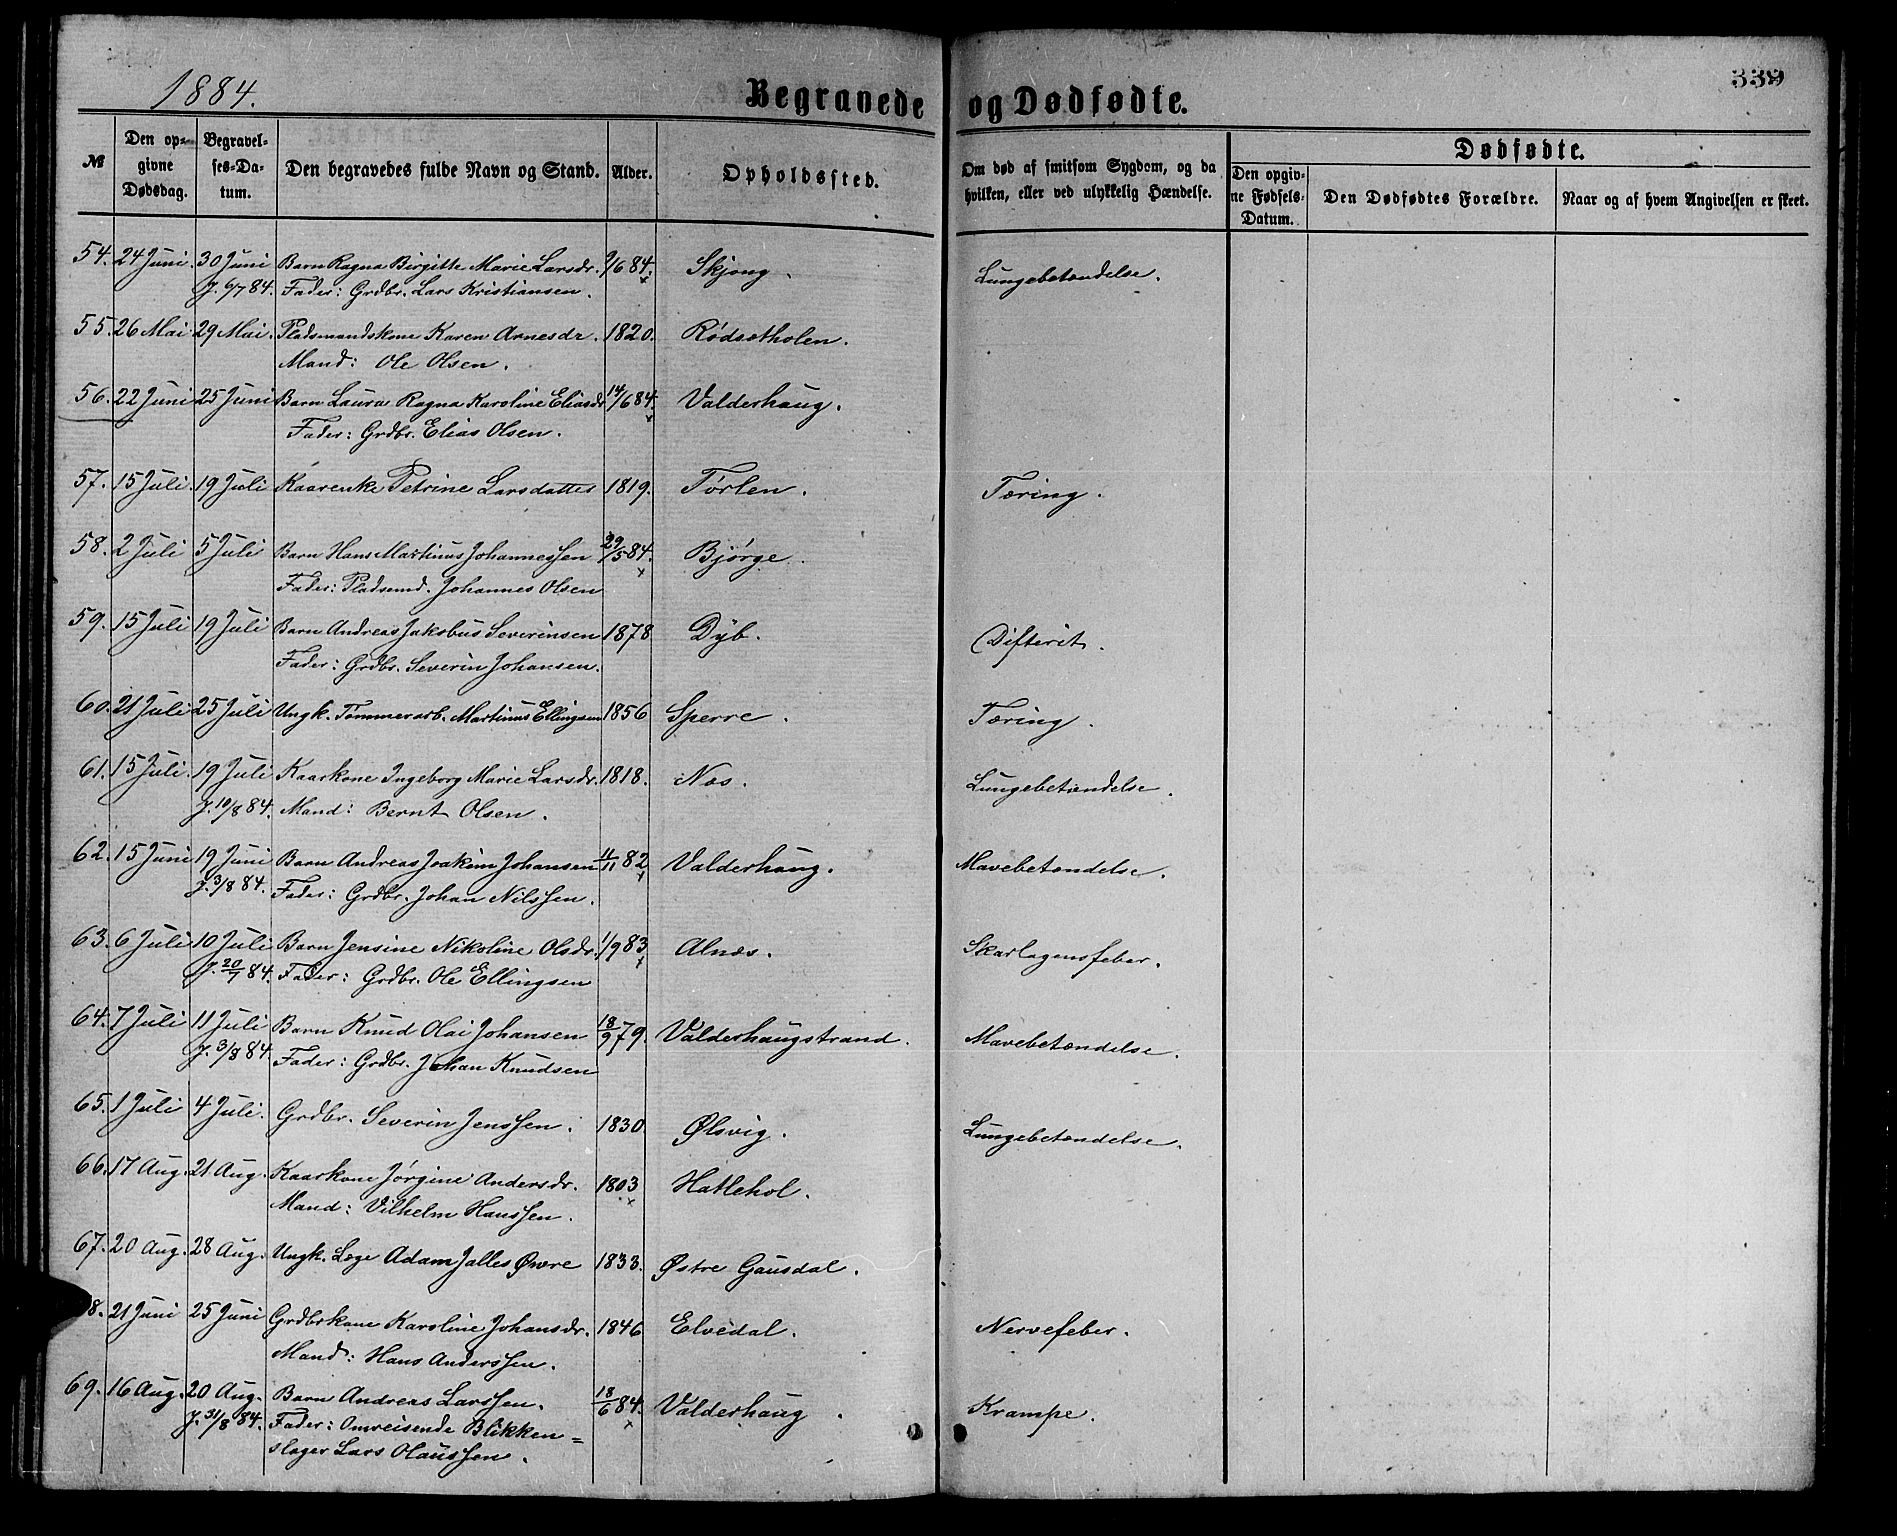 1884. Begravede og Dødfødte. 339
№ Den opgivne Dødsdag. Begravelses-Datum. Den begravedes fulde Navn og Stand. Alder. Opholdssted. Om død af smitsom Sygdom, og da hvilken, eller ved ulykkelig Hændelse. Dødfødte. Den opgivne Fødsels-Datum. Den Dødfødtes Forældre. Naar og af hvem Angivelsen er skeet.
54. 24 Juni. 30 Juni Barn Ragna Birgitte Marie Larsdr. 9/6 84. Skjong. Lungebetændelse.
J. 6/7 84. Fader: Grdbr. Lars Kristiansen.
55. 26 Mai 29 Mai. Pladsmandskone Karen Arnesdr. 1820. Rødsetholen.
Mand: Ole Olsen.
56. 22 Juni 25 Juni Barn Laura Ragna Karoline Eliasdr 14/6 84. Valderhaug.
Fader: Grdbr. Elias Olsen.
57. 15 Juli. 19 Juli Kaarenke Petrine Larsdatter 1819. Tørlen. Tæring.
58. 2 Juli 5 Juli Barn Hans Martinus Johannessen 29/5 84. Bjørge.
Fader: Pladsmd. Johannes Olsen
59. 15 Juli 19 Juli Barn Andreas Jakobus Severinsen 1878 Dyb. Difterit.
Fader: Grdbr. Severin Johansen.
60. 21 Juli 25 Juli Ungk. Tømmerarb. Martinus Ellingsen 1856 Sperre. Tæring.
61. 15 Juli. 19 Juli Kaarkone Ingeborg Marie Larsdr. 1818. Næs. Lungebetændelse.
J. 10/8 84. Mand: Bernt Olsen.
62. 15 Juni 19 Juni Barn Andreas Joakim Johansen 11/11 82 Valderhaug. Mavebetændelse.
J. 3/8 84. Fader: Grdbr. Johan Nilssen.
63. 6 Juli 10 Juli Barn Jensine Nikoline Olsdr. 1/9 83 Alnæs. Skarlagensfeber.
J. 20/7 84. Fader: Grdbr. Ole Ellingsen
64. 7 Juli 11 Juli Barn Knud Olai Johansen 18/9 79. Valderhaugstrand. Mavebetændelse.
J. 3/8 84. Fader: Grdbr. Johan Knudsen
65. 1 Juli 4 Juli. Grdbr. Severin Jenssen. 1830. Ølsvig. Lungebetændelse.
66. 17 Aug. 21 Aug. Kaarkone Jørgine Andersdr. 1803 Hatlehol.
Mand: Vilhelm Hanssen.
67. 20 Aug. 28 Aug. Ungk. Læge Adam Jalles Øvre 1833. Østre Gausdal.
8. 21 Juni 25 Juni Grdbrkone Karoline Johansdr. 1846 Elvedal. Nervefeber.
Mand: Hans Anderssen.
69. 16 Aug. 20 Aug. Barn Andreas Larssen. 18/6 84. Valderhaug. Krampe.
J. 31/8 84. Fader: Omreisende Blikken=
slager Lars Olaussen.